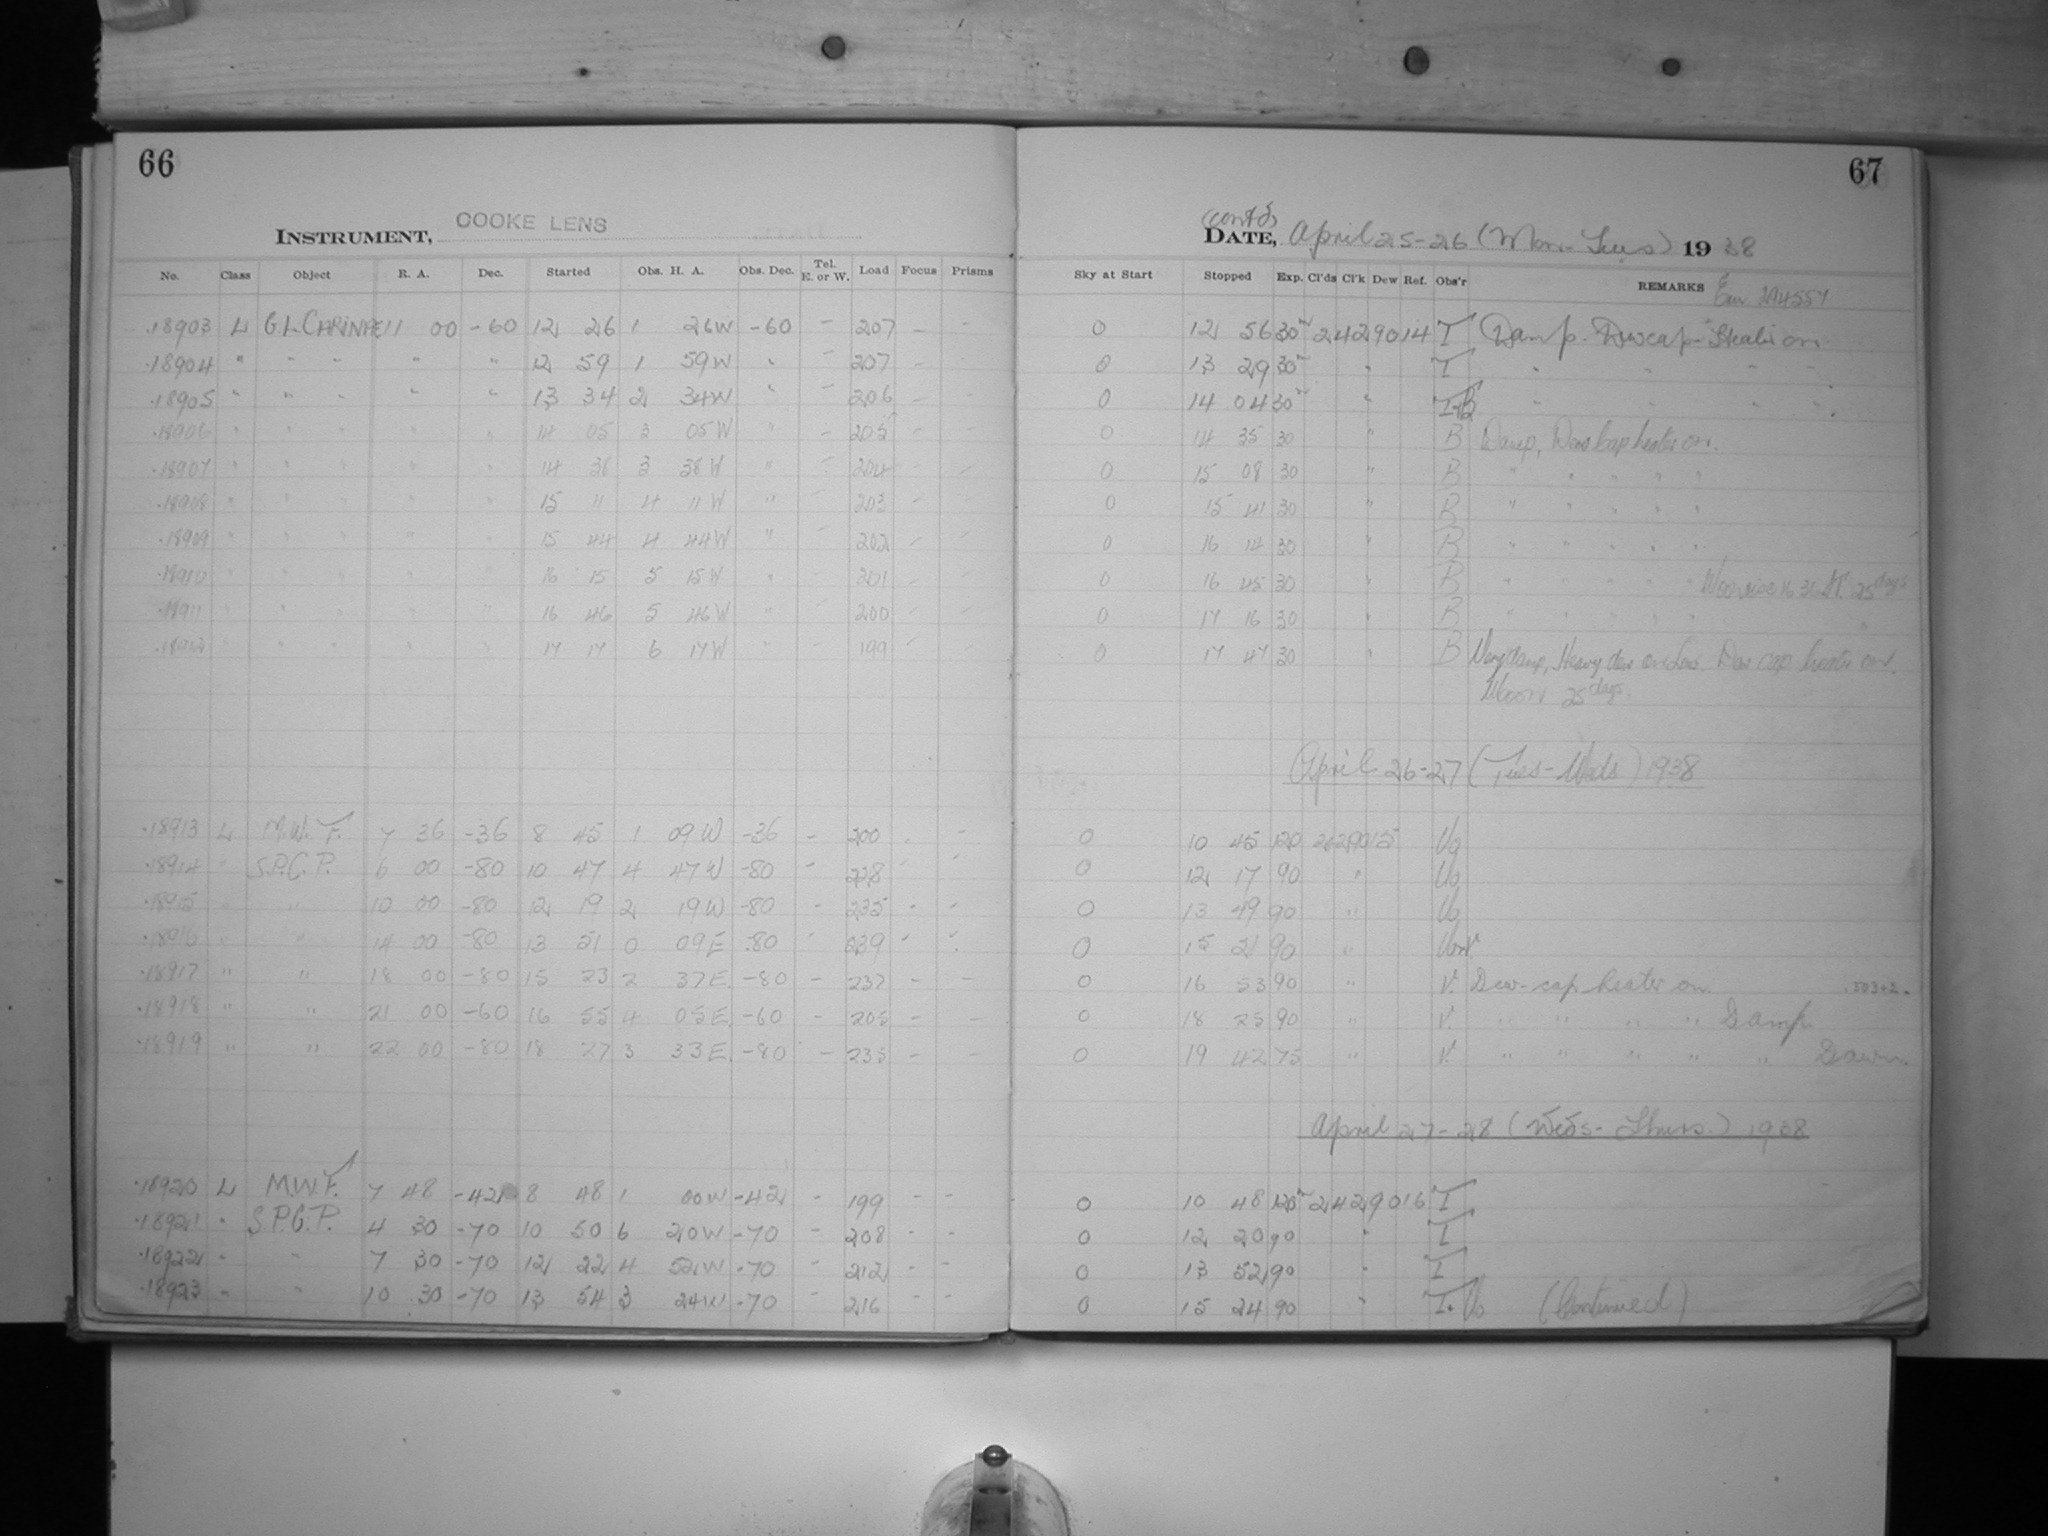 66
67
INSTRUMENT, COOKE LENS
(contd)
DATE, April 25-26 (Mon-Tues) 1938
No. Class Object R. A. Dec. Started Obs. H. A. Obs. Dec. Tel. E. or W. Load Focus Prisms Sky at Start Stopped Exp. Cl'ds Cl'k Dew Ref. Obs'r REMARKS
18903 L 11 00 -60 12 26 1 26W -60 - 207 - - 0 12 56 30 2429014 T Damp. Dewcap-Heater on
18904 " " " " " " 12 59 1 59W " - 207 - 0 13 29 30 " T " " " "
18905 " " " " " " 13 34 2 34W " - 206 - - 0 14 04 30 " T+B " " " "
18906 " " " " " " 14 05 3 05W " - 205 - - 0 14 35 30 " B Damp, Dew Cap heater on.
18907 " " " " " " 14 38 3 38W " - 204 - - 0 15 08 30 " B " " " " "
18908 " " " " " " 15 11 4 11W " - 203 - - 0 15 41 30 " B " " " " "
18909 " " " " " " 15 44 4 44W " - 202 - - 0 16 14 30 " B " " " " "
18910 " " " " " " 16 15 5 15W " - 201 - - 0 16 45 30 " B " " " " " Moonrise 16 31 ST. 25 days
18911 " " " " " " 16 46 5 46W " - 200 - - 0 17 16 30 " B " " " " "
18912 " " " " " " 17 17 6 17W " - 199 - - 0 17 47 30 " B Very damp, Heavy dew on Lens. Dew cap heater on.
Moon 25 days.
April 26-27 (Tues-Weds) 1938
18913 L M.W.F. 7 36 -36 8 45 1 09W -36 - 200 - - 0 10 45 120 2429015 Vo
18914 " S.P.C.P. 6 00 -80 10 47 4 47W -80 - 228 - - 0 12 17 90 " Vo
18915 " " 10 00 -80 12 19 2 19W -80 - 235 - - 0 13 49 90 " Vo
18916 " " 14 00 -80 13 51 0 09E -80 - 239 - - 0 15 21 90 "
18917 " " 18 00 -80 15 23 2 37E -80 - 237 - - 0 16 53 90 " V. Dew-cap heater on.
18918 " " 21 00 -60 16 55 4 05E -60 - 205 - - 0 18 25 90 " V. " " " " Damp
18919 " " 22 00 -80 18 27 3 33E -80 - 235 - - 0 19 42 75 " V. " " " " " Dawn.
April 27-28 (Weds-Thurs.) 1938
18920 L M.W.F. 7 48 -42 8 48 1 00W -42 - 199 - - 0 10 48 120 2429016 T
18921 " S.P.C.P. 4 30 -70 10 50 6 20W -70 - 208 - - 0 12 20 90 " T
18922 " " 7 30 -70 12 22 4 52W -70 - 212 - - 0 13 52 90 " T
18923 " " 10 30 -70 13 54 3 24W -70 - 216 - - 0 15 24 90 " T. Vo (Continued)